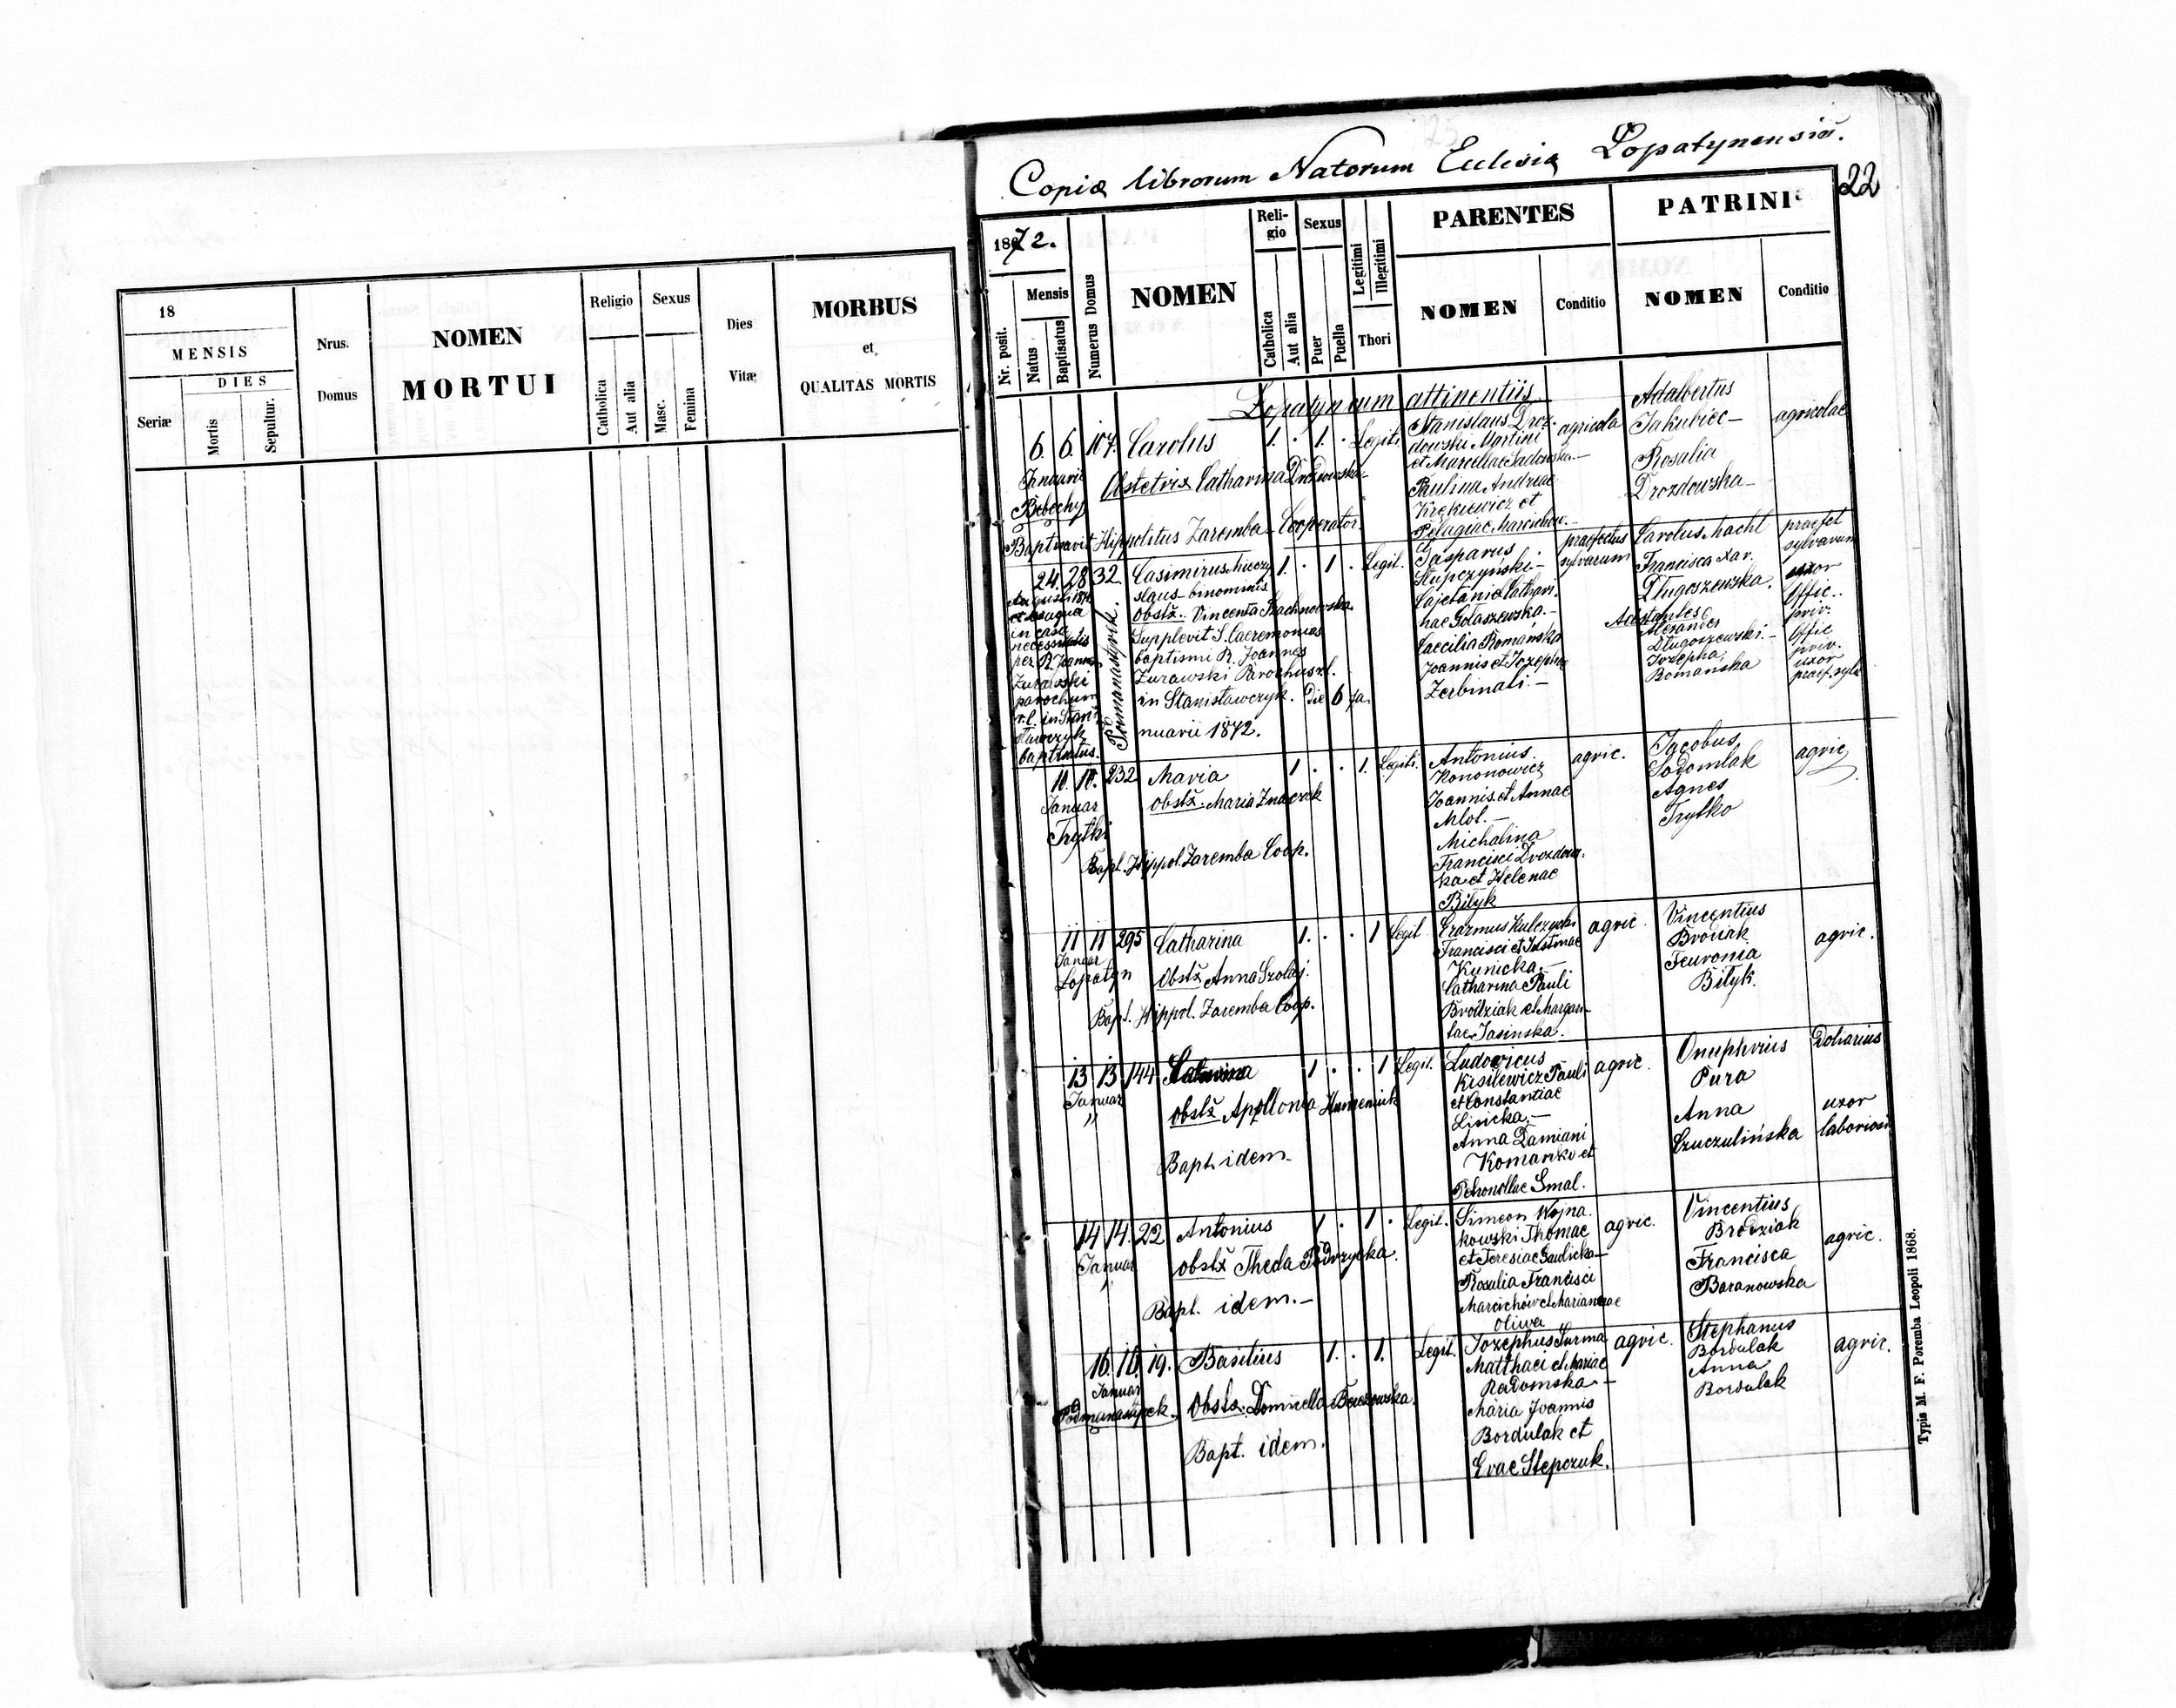 18
MENSIS
DIES
Seriæ
Mortis
Sepultur.
Nrus.
Domus
NOMEN
MORTUI
Religio
Catholica
Aut alia
Sexus
Masc.
Femina
Dies
Vitæ
MORBUS
et
QUALITAS MORTIS
Copiæ librorum Natorum Ecclesiæ Lopatynensis.
22
1872.
Nr. posit.
Mensis
Natus
Baptisatus
Numerus Domus
NOMEN
Reli-
gio
Catholica
Aut alia
Sexus
Puer
Puella
Legitimi
Illegitimi
Thori
PARENTES
NOMEN
Conditio
PATRINI
NOMEN
Conditio
Lopatyn cum attinentiis
6. 6. 107. Carolus 1. . 1. . Legit.
Januarii
Bebechy
Obstetrix Catharina Drozdowska
Baptisavit Hippolitus Zaremba Cooperator.
Stanislaus Droz-
dowski Martini
et Marcellae Sadowska.—
Paulina Andreae
Krękiewicz et
Pelagiae Marcichow.—
agricola
Adalbertus
Jakubiec—
Rosalia
Drozdowska—
agricolae
24. 28. 32. Casimirus Mieczy 1. . 1 . Legit.
slaus binominis
Obstx. Vincenta Stachnowska
Supplevit S. Caeremonias
baptismi R. Joannes
Żurawski Parochus r.l.
in Stanisławczyk. Die 6 Ja-
nuarii 1872.
Augusti 1871
et aqua
in casu
necessitatis
per R. Joannem
Żurawski
parochum
r.l. in Stani
sławczyk
baptisatus.
Podmanastyrek.
Gasparus
Słupczyński—
Cajetani et Cathari-
nae Gołaszewska.—
Caecilia Romańska
Joannis et Josepha
Zerbinati.—
praefectus
sylvarum
Carolus Machl
Francisca Xav.
Długoszewska.
Adestantes
Alexander
Długoszewski.—
Josepha
Romańska
praefect
sylvarum
uxor
Offic.
priv.
Offic
priv.
uxor
praef. sylv
10. 10. 232 Maria 1 . . 1. Legiti.
Januar
Trytki
obstx. Maria Znaczek
Bapt. Hippol. Zaremba Coop.
Antonius
Kononowicz
Joannis et Annae
Mlot.—
Michalina
Francisci Drozdow-
ka et Helenae
Bilyk
agric.
Jacobus
Sodomlak
Agnes
Trytko
agric
11 11 295 Catharina 1. . . 1 Legit
Januar
Lopatyn
Obstx Anna Szolaj.
Bapt. Hippol. Zaremba Coop.
Erazmus Kulczycki
Francisci et Justinae
Kunicka.—
Catharina Pauli
Brodziak et Margari-
tae Jasinska.
agric.
Vincentius
Brodziak
Feuronia
Bilyk.
agric.
13 13 144 1 . . 1 Legit.
Januar
"
obstx Apollonia Humeniuk
Bapt. idem—
Ludovicus
Kisilewicz Pauli
et Constantiae
Lisicka.—
Anna Damiani
Komanko et
Petronellae Smal.
agric.
Onuphrius
Pura
Anna
Czuczulińska
Doliarius
uxor
laboriosi
14 14. 22 Antonius 1 . 1 . Legit.
Januar
"
obstx Theda Podrzycka.
Bapt. idem.—
Simeon Wojna-
kowski Thomae
et Teresiae Gaulicka—
Rosalia Francisci
Marcichów et Mariannae
Oliwa
agric.
Vincentius
Brodziak
Francisca
Baranowska
agric.
16. 16. 19. Basilius 1. . 1. Legit.
Januar
Podmanastyrek.
Obstx. Domicella Berezowska.
Bapt. idem.
Josephus Surma
Matthaei et Mariae
Radomska—
Maria Joannis
Bordulak et
Evae Stepczuk.
agric.
Stephanus
Bordulak
Anna
Bordulak
agric.
Typis M. F. Poremba Leopoli 1868.